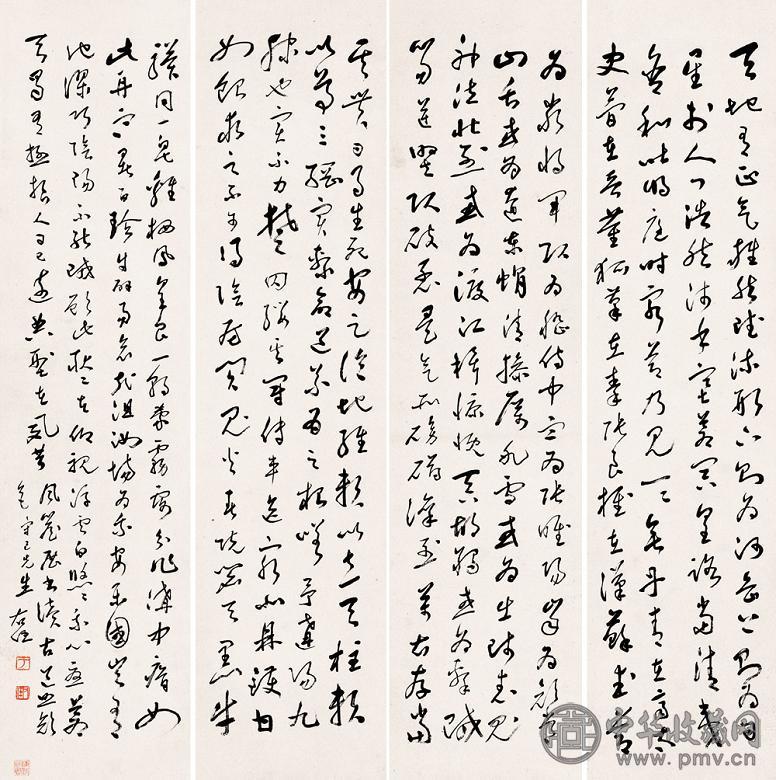 天地有正氣雜然賦流形下則為河嶽上則為日
星於人曰浩然沛乎塞蒼冥皇路當清夷
含和吐明庭時窮節乃見一一垂丹青在齊太
史簡在晉董狐筆在秦張良椎在漢蘇武節
為嚴將軍頭為嵇侍中血為張睢陽齒為顏常
山舌或為遼東帽清操厲冰雪或為出師表鬼
神泣壯烈或為渡江楫慷慨吞胡羯或為擊賊
笏逆豎頭破裂是氣所磅礴凜烈萬古存當
其貫日月生死安足論地維賴以立天柱賴
以尊三綱實繫命道義為之根嗟予遘陽九
隸也實不力楚囚纓其冠傳車送窮北鼎鑊甘
如飴求之不可得陰房闃鬼火春院閟天黑牛
驥同一皂雞棲鳳凰食一朝蒙霧露分作溝中瘠如
此再寒暑百沴自辟易哀哉沮洳場為我安樂國豈有
他謬巧陰陽不能賊顧此耿耿在仰視浮雲白悠悠我心悲蒼
天曷有極哲人日已遠典型在夙昔
風簷展書讀古道照顏
色 守己先生 右任
中华收藏网
www.pmv.cn